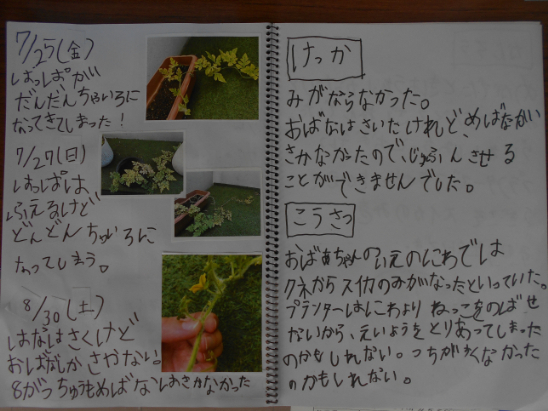 7/25(金)
はっぱが
だんだんちゃいろに
なってきてしまった!
7/27(日)
はっぱは
ふえるけど
どんどんちゃいろに
なってしまう。
8/30(土)
はなはさくけど
おばなしかさかない。
8がつちゅうもめばなはさかなかった
けっか
みがならなかった。
おばなはさいたけれど、めばながい
さかなかったので、じゅふんさせる
ことができませんでした。
こうさつ
おばあちゃんのいえのにわでは
タネからスイカのみがなったといっていた。
プランターはにわよりねっこをのばせ
ないから、えいようをとりあってしまった
のかもしれない。つちがすくなかった
のかもしれない。